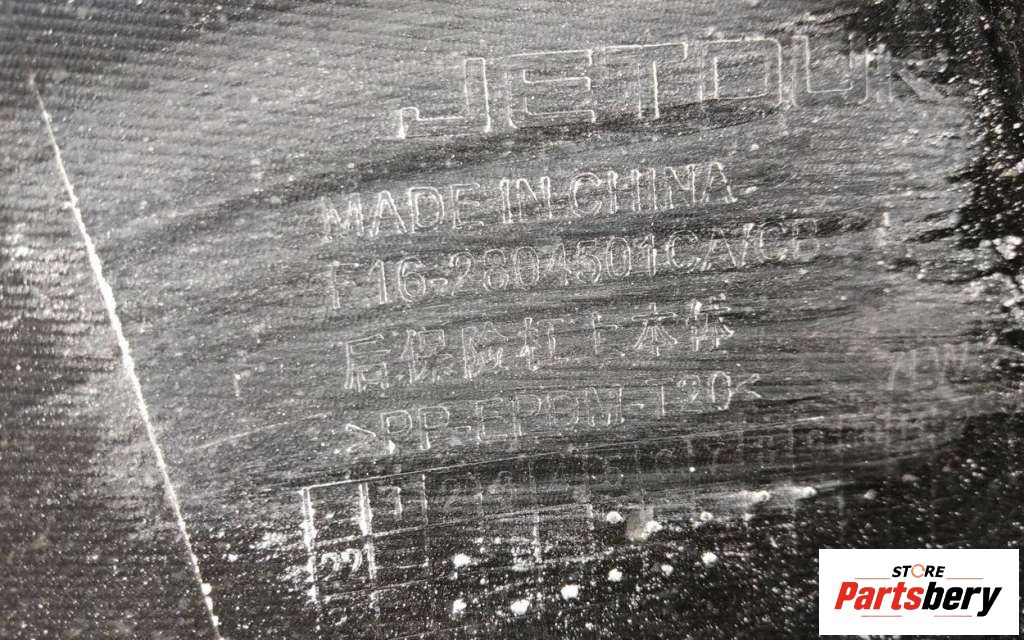 JETOUR
MADE IN CHINA
F16-2804501CA/CB
后保险杠上本体
>PP-EPDM-T20<
22
STORE
Partsbery